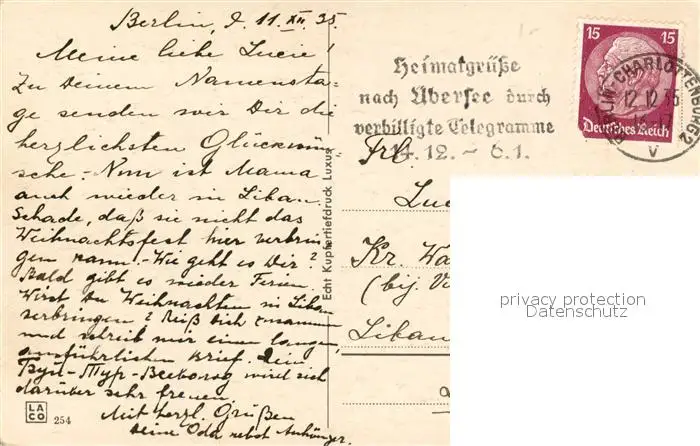 Berlin, d. 11. XII. 35.
Meine liebe Lucie!
Zu Deinem Namensta-
ge senden wir Dir die
herzlichsten Glückwün-
sche. - Nun ist Mama
auch wieder in Libau.
Schade, daß sie nicht das
Weihnachtsfest hier verbrin-
gen kann. - Wie geht es Dir?
Bald gibt es wieder Ferien.
Wirst Du Weihnachten in Libau
verbringen? Reiß Dich zusammen
und schreib mir einen langen,
ausführlichen Brief. Dein
Бул-Тур-
wird sich
darüber sehr freuen.
Mit herzl. Grüßen
Deine Odd nebst Anhänger.
LACO 254
Echt Kupfertiefdruck Luxus
Heimatgrüße
nach Übersee durch
verbilligte Telegramme
14.12. - 6.1.
15 15
Deutsches Reich
BERLIN-CHARLOTTENBURG 2
12.12.35
16-17
v
Frl.
Luc
Kr. Wa
(bij. V
Libau
privacy protection
Datenschutz